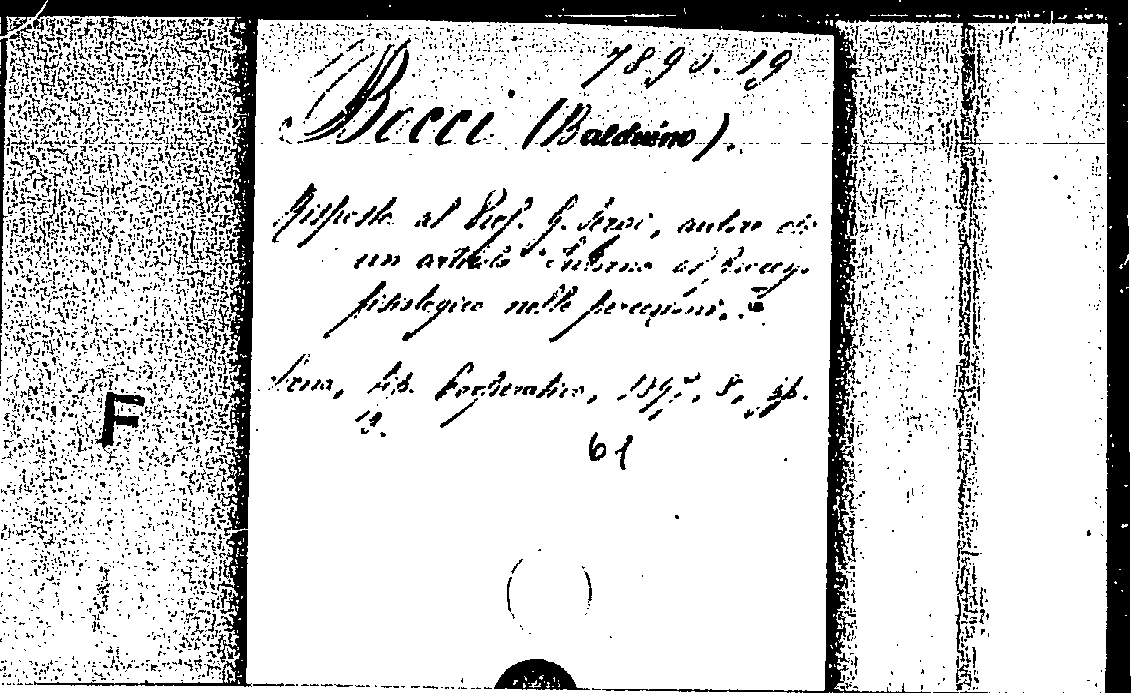 7890.19
Bocci (Balduino).
Risposta al Prof. G. Sergi, autore di
un articolo "Intorno al
fisiologico nelle percezioni."
Siena, tip. Cooperativa, 1897, 8, pp.
19.
61
F